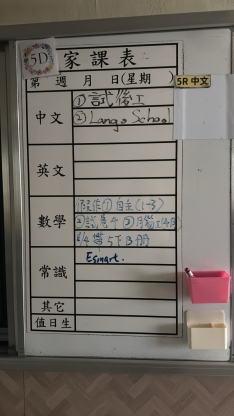 5D
家課表
第 週 月 日(星期 )
5R 中文
中文
①試後工
②Lang。School
英文
數學
①自主(1-3)
②試卷4 ③
帶5下B冊
常識
Esmart.
其它
值日生